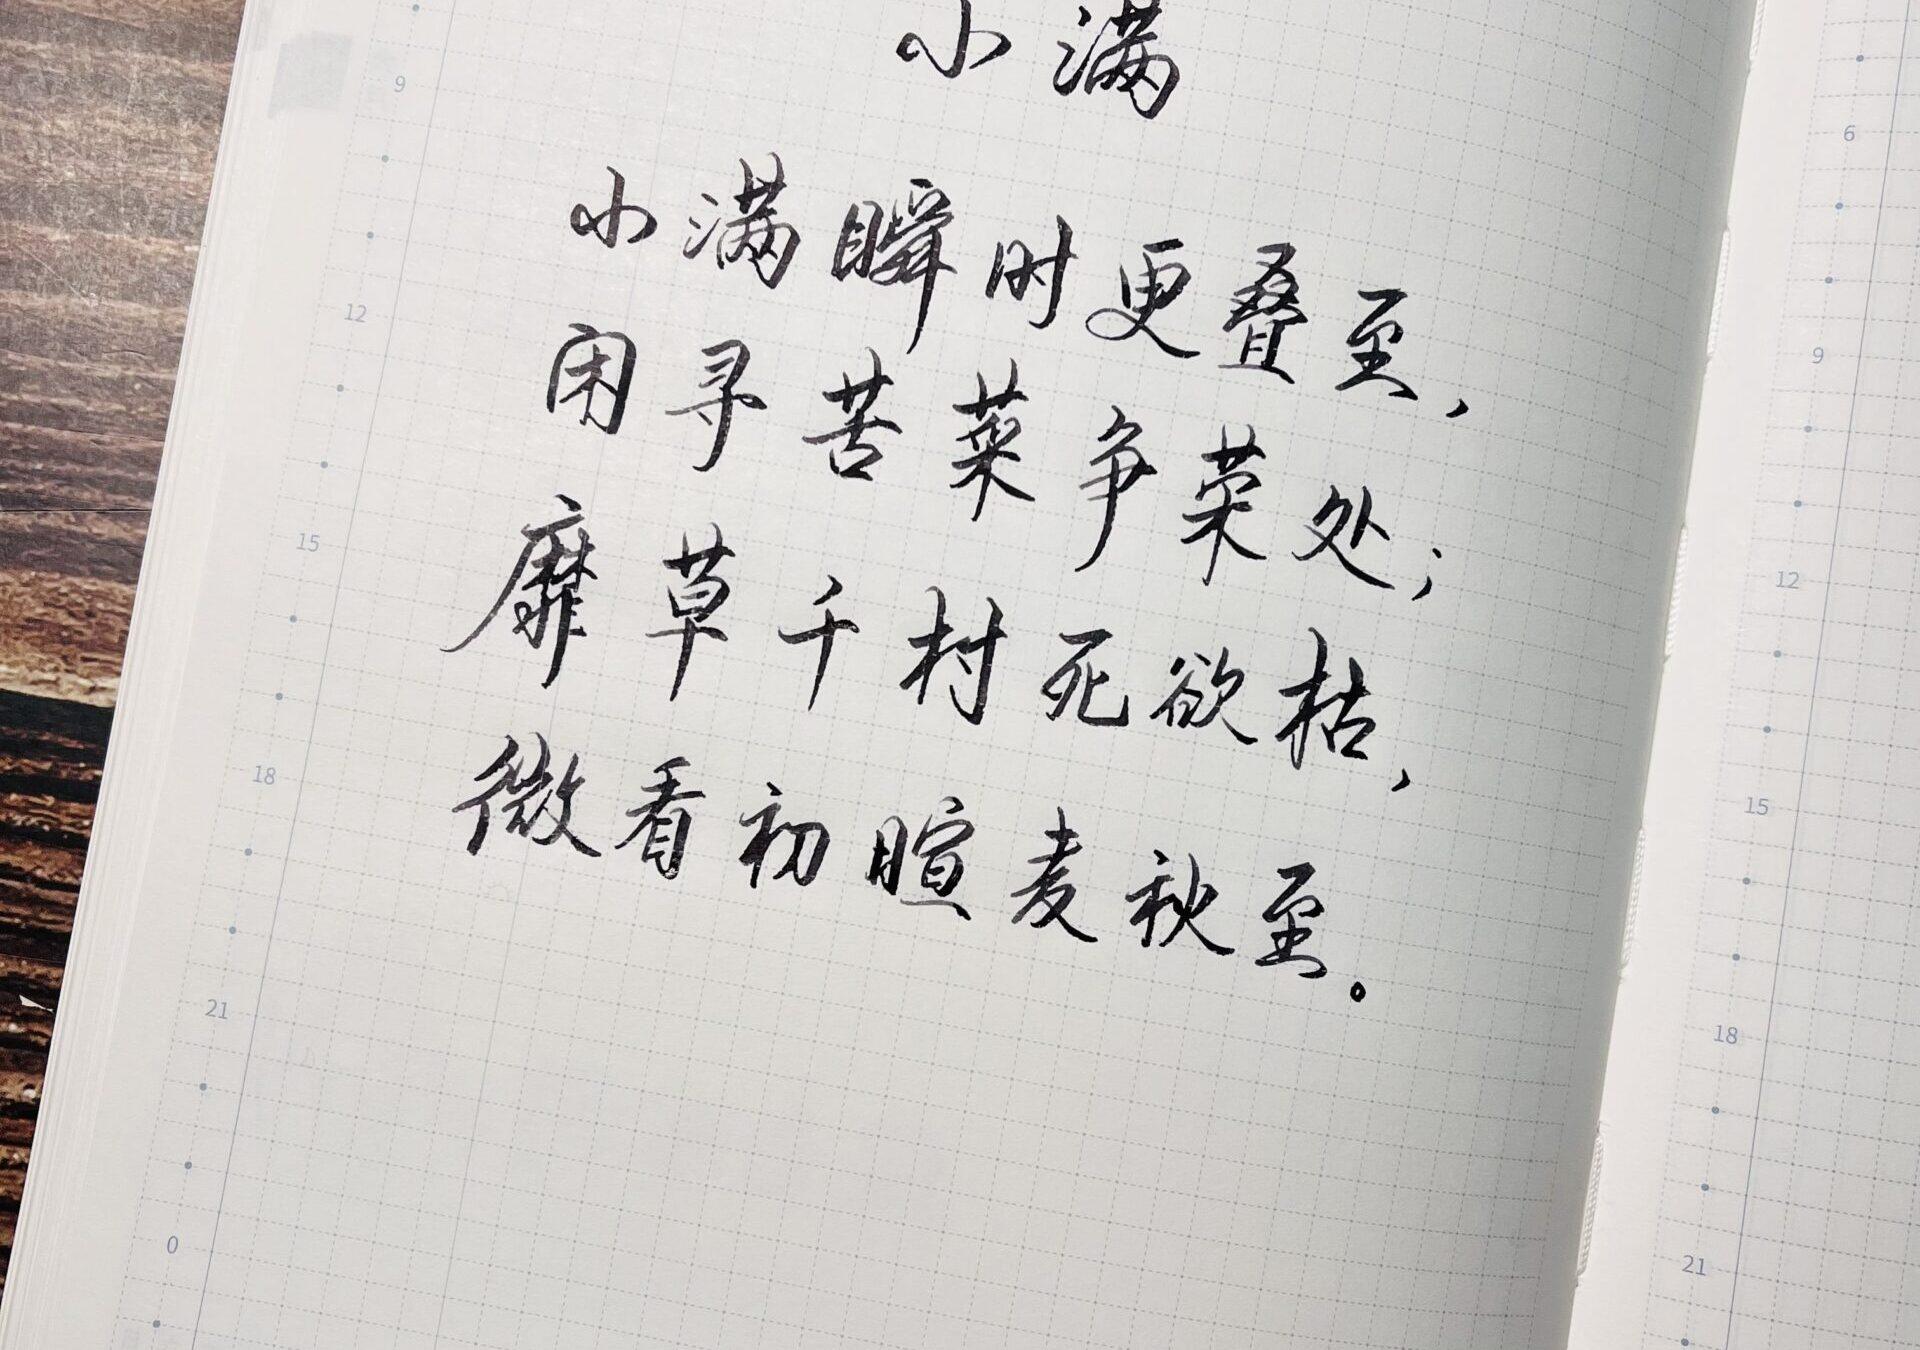 小满
小满瞬时更叠至，
闲寻苦菜争荣处；
靡草千村死欲枯，
微看初暄麦秋至。
9
12
15
18
21
0
6
9
12
15
18
21